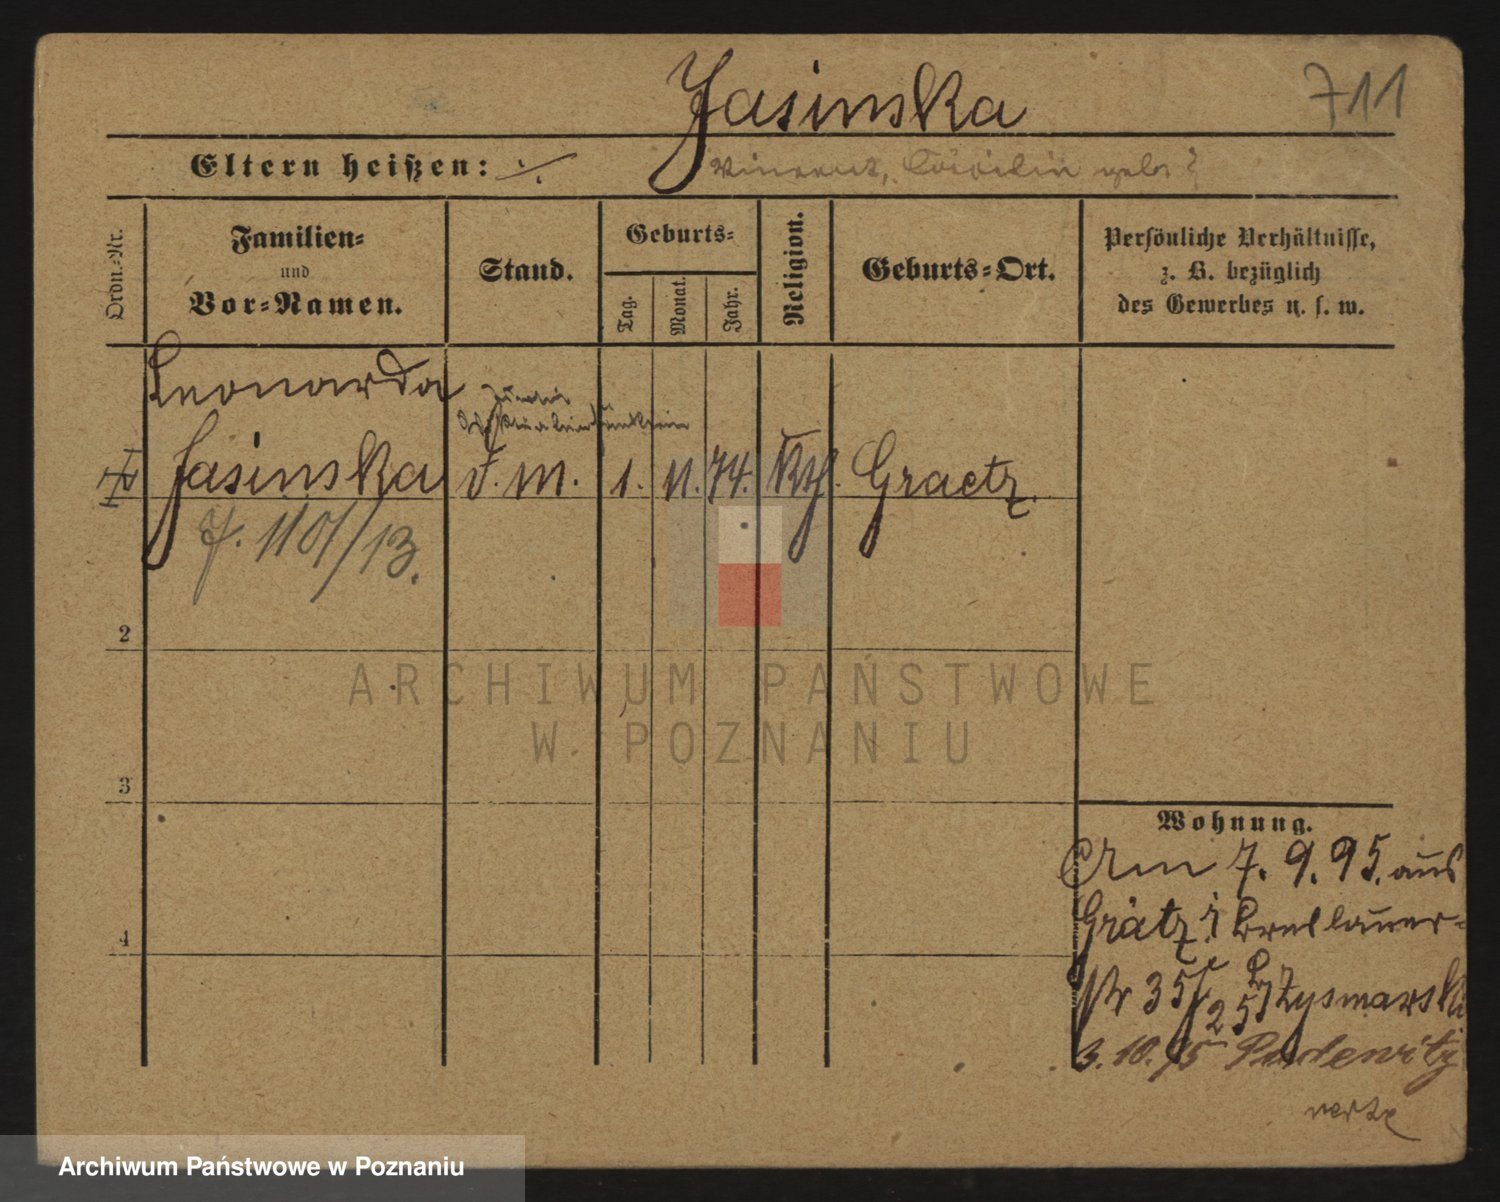 Jasinska
711
Eltern heißen: ./.
Vincent, Cäcilia geb. ?
Ordn.-Nr.
Familien-
und
Vor-Namen.
Stand.
Geburts-
Tag.
Monat.
Jahr.
Religion.
Geburts-Ort.
Persönliche Verhältnisse,
z. B. bezüglich
des Gewerbes u. s. w.
Leonarda
Jasinska
D. M.
1.
11.
74.
Kth.
Graetz.
J. 1101/13.
2
3
4
Wohnung.
Am 7. 9. 95. aus
Grätz i Breslauer-
Str 35
25 Szysmanski
3. 10. 95 Pudewitz
vertz
ARCHIWUM PAŃSTWOWE
W POZNANIU
Archiwum Państwowe w Poznaniu